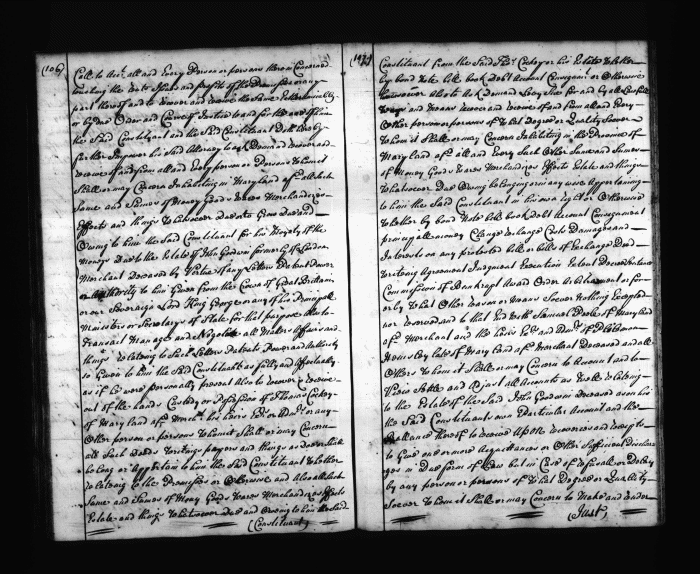 (106)
Call to Acct. all and Every Person or persons therein Concerned
touching the Rents Issues and profits of the Premises or any
part thereof and to recover and receive the Same
or by due Order and Course of Justice to and for the use of him
the Said Constituent and the Said Constituent Doth hereby
further Impower his said Attorney to ask Demand recover and
receive of and from all and Every person or Persons Whomsoever
Shall or may Concern Inhabiting in Maryland afd. all such
Sume and Sumes of Money Goods Wares Merchandizes
Effects and things Whatsoever Due and
Owing to him the Said Constituent for his Majesty of the
Moneys Due to the Estate of John Goodwin formerly of London
Merchant Deceased by Virtue of any Letters Patent Power
or Authority to him Given from the Crown of Great Brittain
or our Sovereign Lord King George or any of his Principle
Ministers or Secretarys of State for that purpose Also to
Transact Manage and Negotiate all Matters Affairs and
things relating to Such Letters Patents Power and Authority
so Given to him the Said Constituent as fully and Effectually
as if he were personally present Also to recover & receive
out of the hands Custody or Possession of Thomas Cockey
of Maryland afd. Mercht. his heirs Exrs. or Admrs. or any
Other person or persons Whom it Shall or may Concern
all Such Deeds Writings papers and things as do or Shall
belong or Appertain to him the Said Constituent Whether
relating to the Premises or Otherwise and Also all such
Sume and Sumes of Money Goods Wares Merchandizes Effects
Estate and things Whatsoever Due and Owing to him the Said
(Constituent)
(107)
Constituent from the Said Thos. Cockey or his Estate Whether
by bond Note bill book Debt Account Consignmt. or Otherwise
howsoever Also to Ask Demand Levy Sue for and by all Lawfull
Ways and Means recover and receive of and from all and Every
Other person or persons of What Degree or Quality Soever
Whom it Shall or may Concern Inhabiting in the Province of
Maryland afd. all and Every Such Other Sume and Sumes
of Money Goods Wares Merchandizes Effects Estate and things
Whatsoever Due Owing belonging or in any wise Appertaining
to him the Said Constituent in his own right or Otherwise
Whether by bond Note bill book Debt Account Consignment
principall money Change Exchange Costs Damages and
Interests on any protested bill or bills of Exchange Deed
Writeing Agreement Judgment Execution Extent Decree Sentence
Commission of Bankrupt Award Order Arbitrament or for
or by What Other reason or means Soever Nothing Excepted
nor reserved and to that End With Samuel Poole of Maryland
afd. Merchant and the heirs Exrs. and Admrs. of
late of Mary land afd. Merchant Deceased and all
Others Whom it Shall or may Concern to Account and to
Settle and Adjust all Accounts as Well relateing
to the Estate of the Said John Goodwin Deceased as on his
the Said Constituents own Particular Account and the
Ballance thereof to receive Upon receiveing and receipts
to Give one or more Acquittances or Other Sufficient Discharges
in Due form of Law but in Case of refusall or Delay
by any person or persons of What Degree or Quality
Soever Whom it Shall or may Concern to Make and render
(Just,